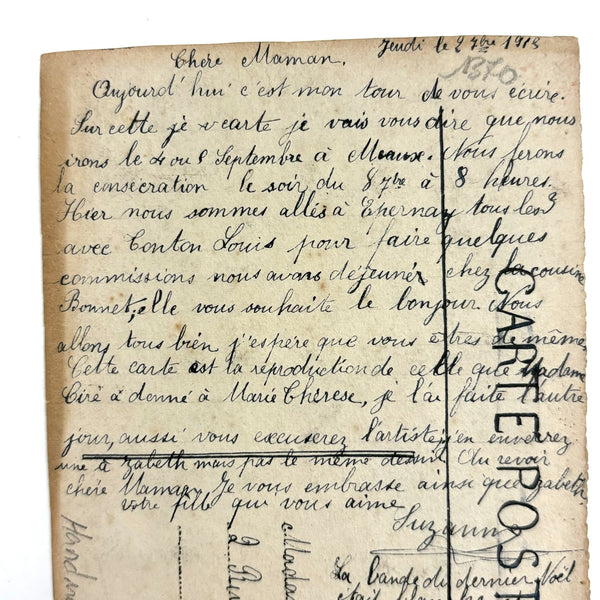 Jeudi le 2 7bre 1913
1370
Chère Maman.
Aujourd'hui c'est mon tour de vous écrire.
Sur cette carte je vais vous dire que nous
irons le 4 ou 8 Septembre à Meaux. Nous ferons
la consécration le soir du 8 7bre à 8 heures.
Hier nous sommes allés à Epernay tous les 3
avec Tonton Louis pour faire quelques
commissions nous avons déjeuner chez la cousine
Bonnet, elle vous souhaite le bonjour Nous
allons tous bien j'espère que vous êtres de même.
Cette carte est la réproduction de celle que Madame
Ciré a donné à Marie Thérèse, je l'ai faite l'autre
jour, aussi vous excuserez l'artiste, j'en enverrez
une à zabeth mais pas le même dessin. Au revoir
chère Maman. Je vous embrasse ainsi que zabeth.
votre fille qui vous aime
Suzanne
La bande du dernier Noël
était
CARTE POST
Madas
2 Ru
Handm